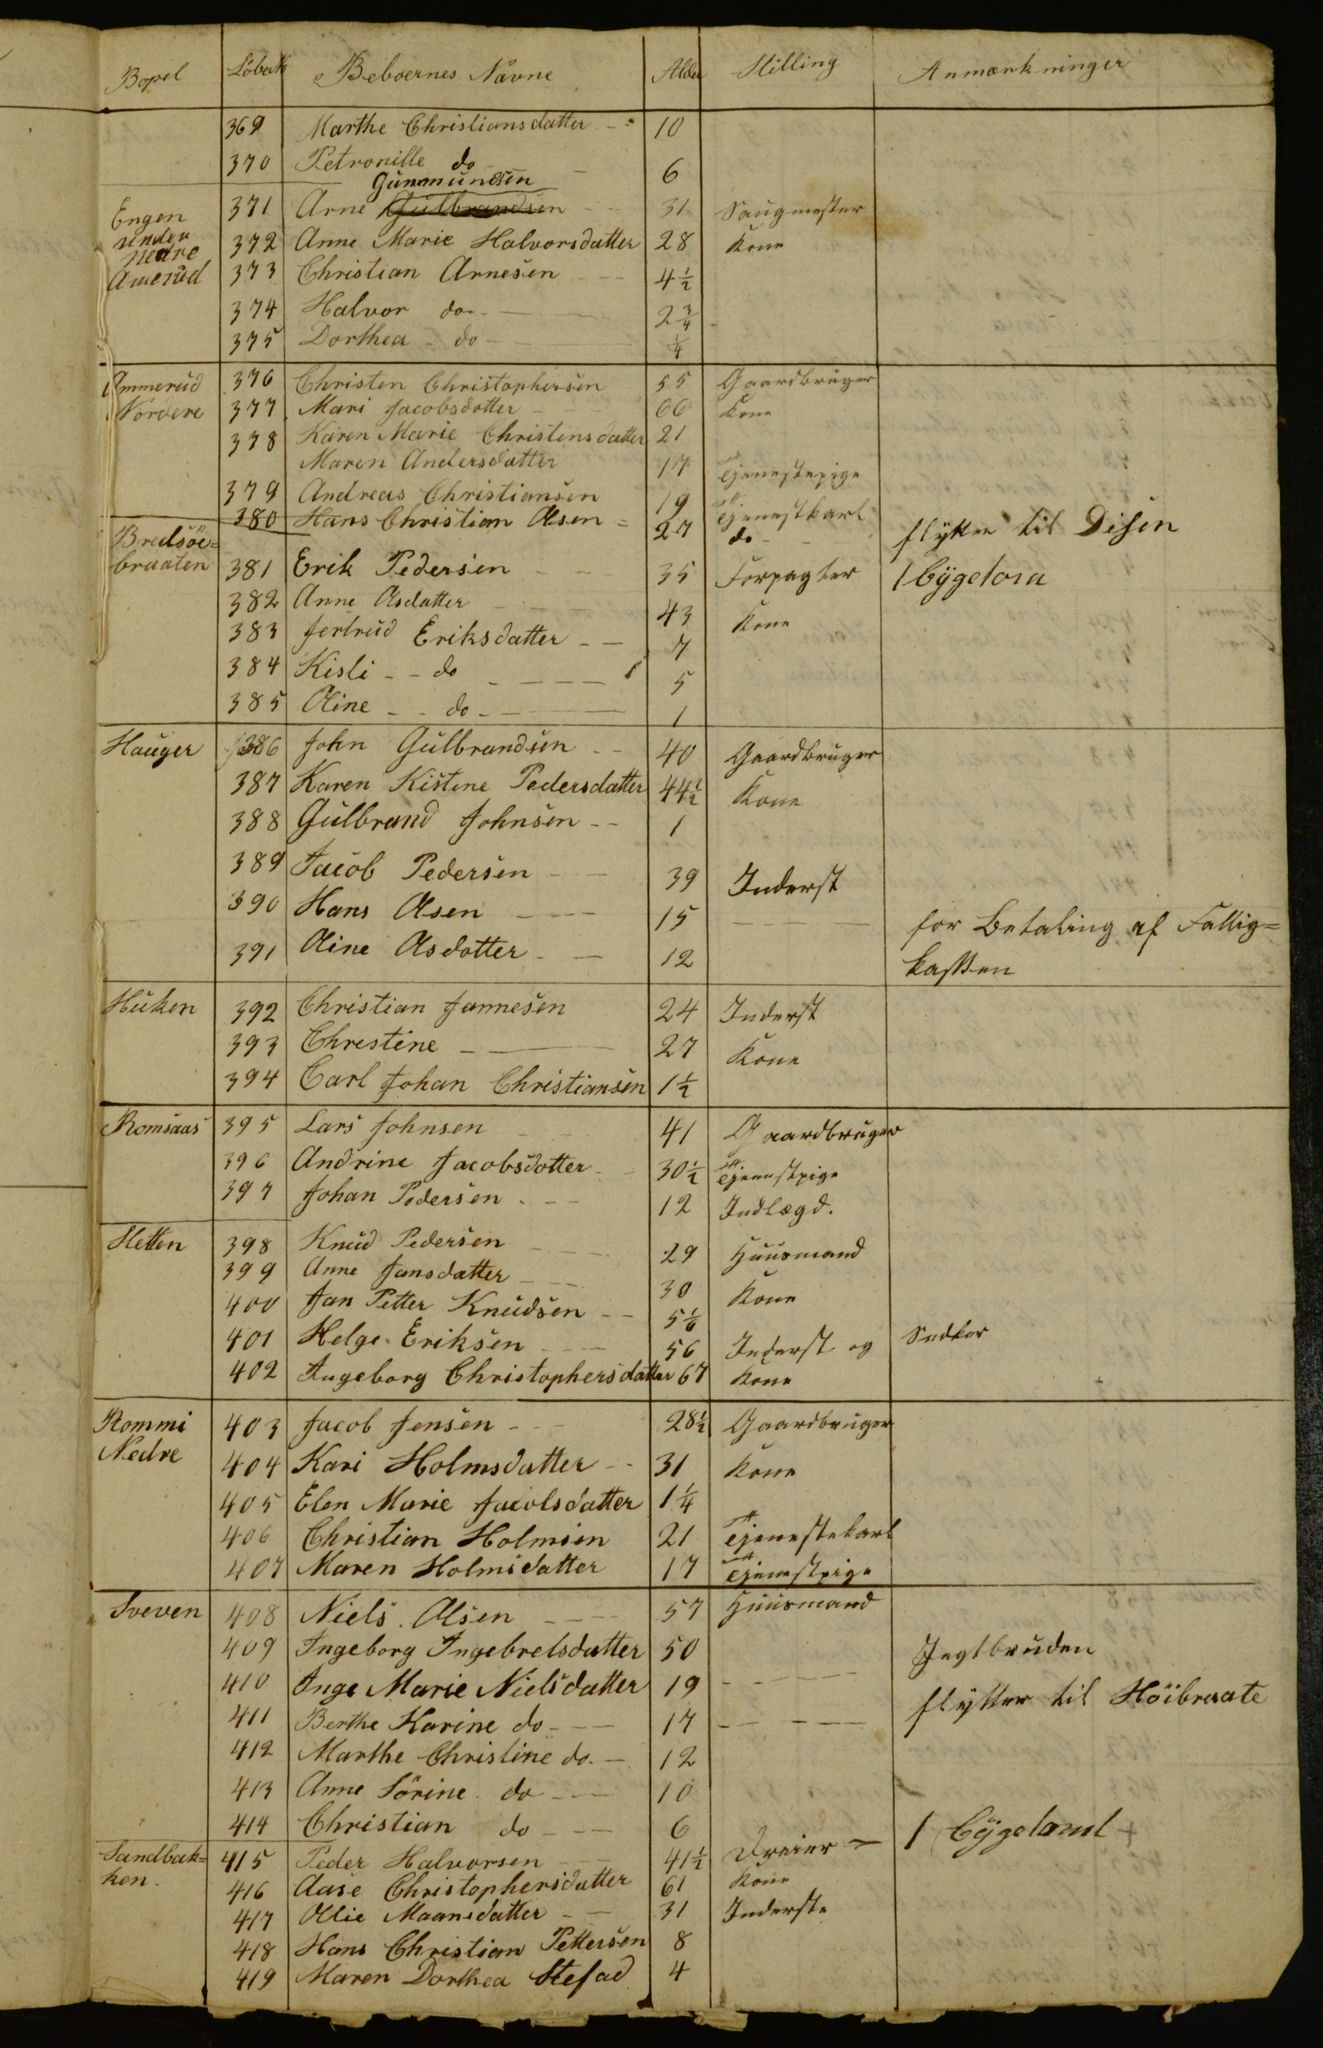 Bopel Löbe№ Beboernes Navne Alder Stilling Anmærkninger
369 Marthe Christiansdatter - - 10
370 Petronille do - 6
Gunmundsen
Engen 371 Arne Gulbrandsen - - 31 Saugmester
under 372 Anne Marie Halvorsdatter 28 Kone
nedre
Amerud 373 Christian Arnesen - - 4½
374 Halvor do - - 2¾
375 Dorthea - do - ¼
Ammerud 376 Christen Christophersen 55 Gaardbruger
Nordere 377 Mari Jacobsdatter - 66 Kone
378 Karen Marie Christensdatter 21
Maren Andersdatter 17 Tjenestepige
379 Andreas Christiansen 19 Tjenestkarl
380 Hans Christian Olsen - 27 do - - flytter til Disen
Bredsöe-
braaten 381 Erik Pedersen - - 35 Forpagter
382 Anne Olsdatter - - 43 Kone
383 Jertrud Eriksdatter - - 7
384 Kisli - - do - - - 5
385 Oline - - do - - 1
Hauger 386 John Gulbrandsen - - 40 Gaardbruger
387 Karen Kistine Pedersdatter 44½ Kone
388 Gulbrand Johnsen - - 1
389 Jacob Pedersen - - 39 Inderst
390 Hans Olsen - - - 15 - - - for Betaling af Fattig=
391 Oline Olsdatter - - 12 kassen
Huken 392 Christian Jannesen 24 Inderst
393 Christine - - 27 Kone
394 Carl Johan Christiansen 1½
Romsaas 395 Lars Johnsen 41 Gaardbruger
396 Andrine Jacobsdatter - 30½ Tjenestpige
397 Johan Pedersen - - - 12 Indlægd.
Sletten 398 Knud Pedersen - - - 29 Huusmand
399 Anne Jansdatter - - - 30 Kone
400 Jan Petter Knudsen - - 5⅙
401 Helge Eriksen - - - 56 Inderst og
402 Ingeborg Christophersdatter 67 Kone
Rommi 403 Jacob Jensen - - 28½ Gaardbruger
Nedre 404 Kari Holmsdatter - - 31 Kone
405 Elen Marie Jacobsdatter 1¼
406 Christian Holmsen 21 Tjenestekarl
407 Maren Holmsdatter 17 Tjenestpige
Sveven 408 Niels Olsen - - - 57 Huusmand
409 Ingeborg Ingebretsdatter 50
410 Inge Marie Nielsdatter 19 - - - flytter til Höibraate
411 Berthe Karine do - - - 17 - - -
412 Marthe Christine do - - 12
413 Anne Sörine do - - - 10
414 Christian do - - - 6
Sandbak= 415 Peder Halvorsen - - 41½ Dreier -
ken. 416 Aase Christophersdatter 61 Kone
417 Ollie Maansdatter - - 31 Inderste
418 Hans Christian Pettersen 8
419 Maren Dorthea 4